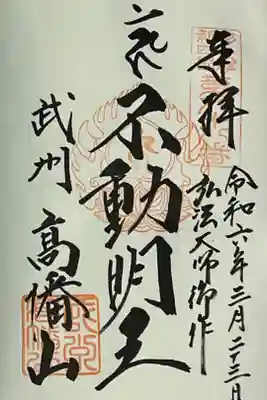 奉拝
令和六年三月二十三日
弘法大師御作
不動明王
武州 高幡山